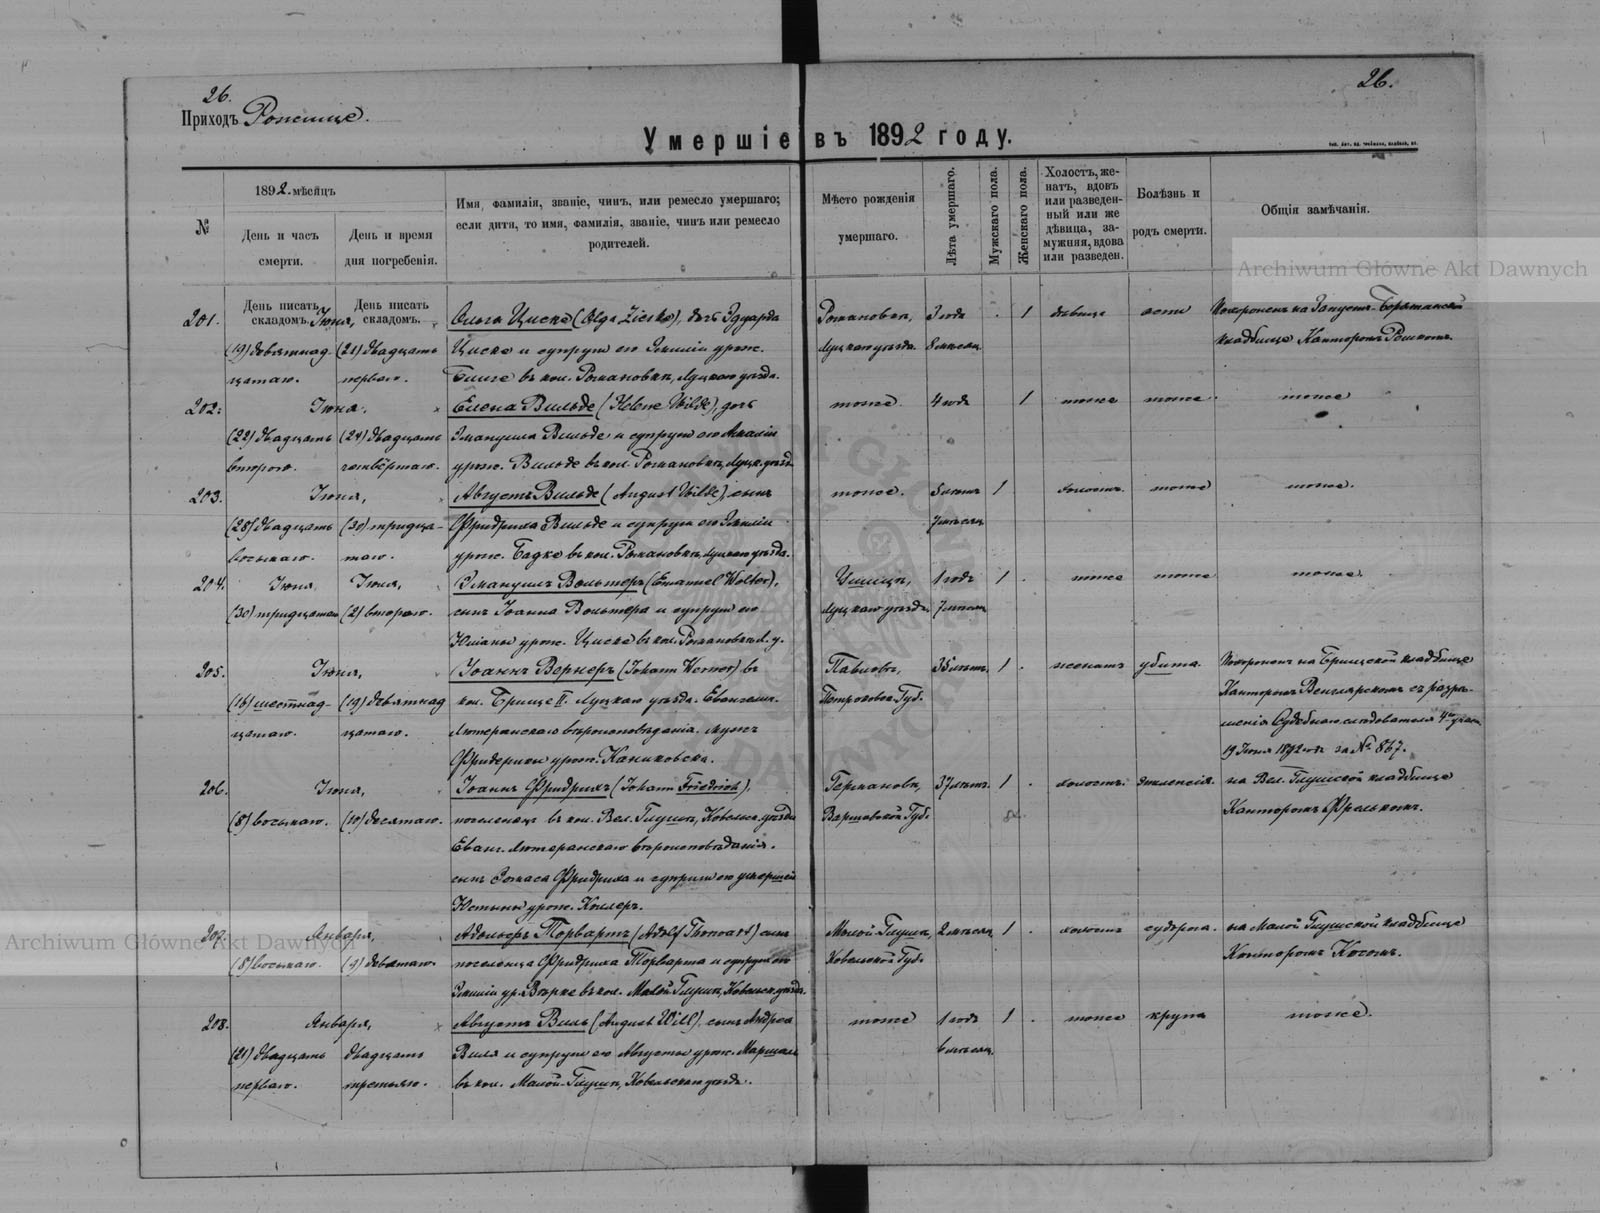 26.
26.
Приходъ Рожище.
Умершіе въ 1892 году.
№
1892 мѣсяцъ
День и часъ смерти.
День и время дня погребенія.
Имя, фамилія, званіе, чинъ, или ремесло умершаго;
если дитя, то имя, фамилія, званіе, чинъ или ремесло
родителей.
Мѣсто рожденія
умершаго.
Лѣта умершаго.
Мужскаго пола.
Женскаго пола.
Холостъ, же-
натъ, вдовъ
или разведен-
ный или же
дѣвица, за-
мужняя, вдова
или разведен.
Болѣзнь и
родъ смерти.
Общія замѣчанія.
Archiwum Główne Akt Dawnych
День писать складомъ.
День писать складомъ.
201. Іюня, Ольга Циске (Olga Zieske), дочь Эдуарда Романовка, 3 года 1 дѣвица
(19) девятнад- (21) двадцать Циске и супруги его Эмиліи урож. Луцкаго уѣзда 8 мѣсяц. кладбищѣ Канторомъ
цатаго. перваго. въ кол. Романовка, Луцкаго уѣзда.
202. Іюня. Елена Вильде (Helene Wilde), дочь тоже. 4 года 1 тоже тоже тоже
(22) двадцать (24) двадцать Эмануила Вильде и супруги его Амаліи
второго. четвёртаго. урож. Вильде въ кол. Романовка, Луцк. уѣзда
203. Іюня, Августъ Вильде (August Wilde), сынъ тоже. 5 лѣтъ 1 холостъ тоже тоже.
(28) двадцать (30) тридца- Фридриха Вильде и супруги его Эмиліи 7 мѣсяц.
восьмаго. таго. урож. Бадке въ кол. Романовка, Луцкаго уѣзда.
204. Іюня Іюля, Эмануилъ Вольтеръ (Emanuel Wolter), 1 годъ 1 тоже тоже тоже.
(30) тридцатаго (2) второго. сынъ Іоанна Вольтера и супруги его Луцкаго уѣзда 7 мѣсяц.
Юліаны урож. Циске въ кол. Романовка Л. у.
205. Іюня, Іоаннъ Вернеръ (Johann Werner) въ 35 лѣтъ. 1 женатъ убитъ Похороненъ на Брищской кладбищѣ
(16) шестнад- (19) девятнад кол. Брище II. Луцкаго уѣзда. Евангелич. Петроковск. Губ. Канторомъ Венглярскомъ съ разрѣ-
цатаго. цатаго. Лютеранскаго вѣроисповѣданія. мужъ шенія Судебнаго слѣдователя 4го участ.
Фридерики урож. Каниковска. 19 Іюня 1892 года за № 867.
206. Іюня, Іоаннъ Фридрихъ (Johann Friedrich), Германовка, 37 лѣтъ. 1 холостъ. эпилепсія. на Вел. Глушской кладбищѣ
(8) восьмаго. (10) десятаго. поселенецъ въ кол. Вел. Глуша, Ковельск. уѣзда Варшавской Губ. Канторомъ
Еванг. Лютеранскаго вѣроисповѣданія.
сынъ Фридриха и супруги его умершей
Юстины урож. Келлеръ.
Archiwum Główne Akt Dawnych
207. Января, Адольфъ Торвартъ (Adolf Thorwart) сынъ Малой Глуша, 2 мѣсяц. 1 холостъ судорога. на Малой Глушской кладбищѣ
(8) восьмаго. (9) девятаго. поселенца Фридриха Торварта и супруги его Ковельской Губ. Канторомъ Косомъ.
Эмиліи ур. въ кол. Малой Глуша, Ковельск. уѣзда.
208. Января, Августъ Виль (August Will), сынъ Андрея тоже 1 годъ 1 тоже крупа тоже.
(21) двадцать двадцать Виля и супруги его Августы урож. Маршаль 6 мѣсяц.
перваго. третьяго. въ кол. Малой-Глуша, Ковельскаго уѣзда.